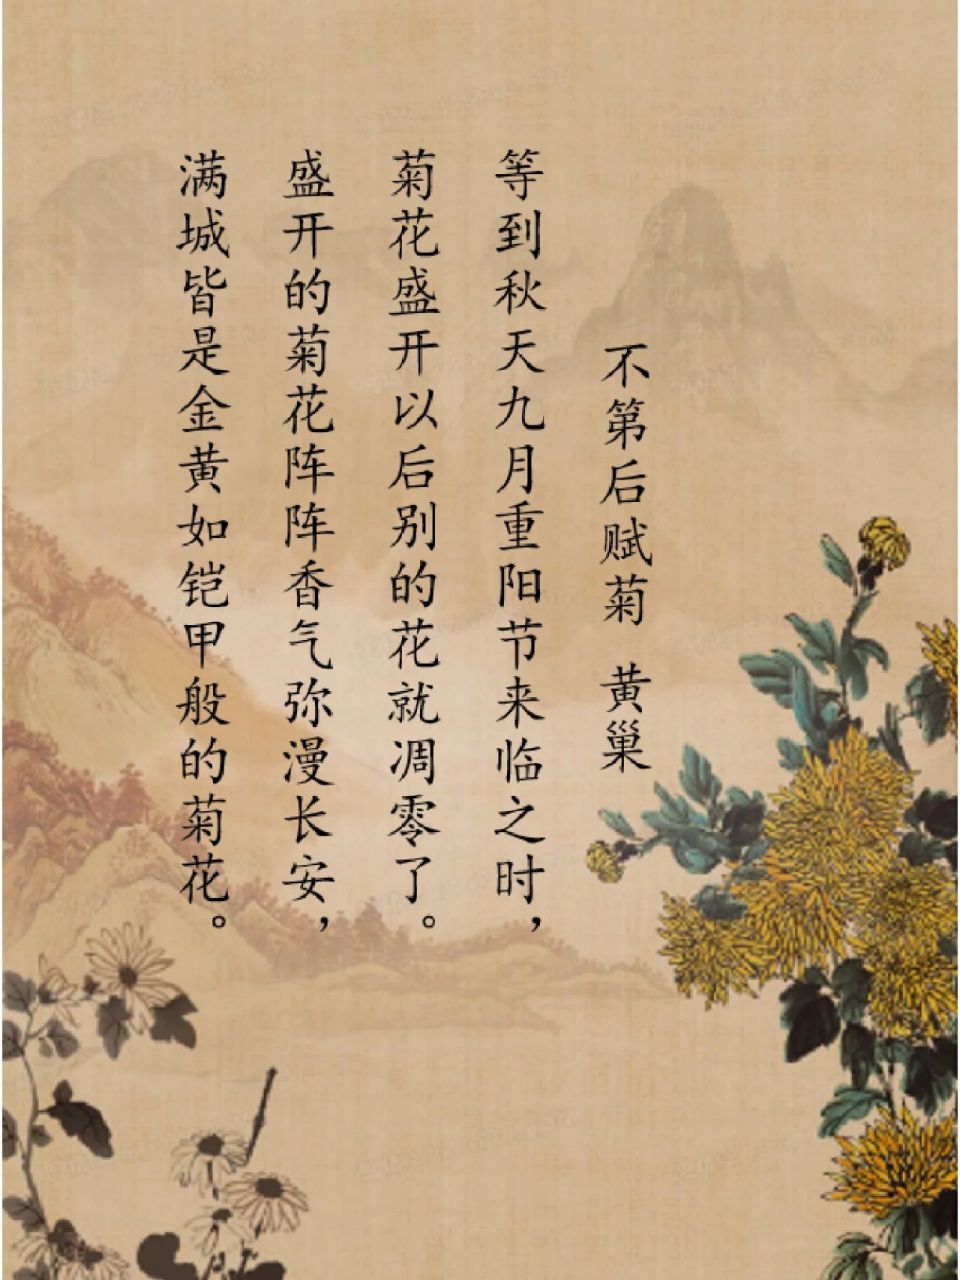 不第后赋菊 黄巢
等到秋天九月重阳节来临之时，
菊花盛开以后别的花就凋零了。
盛开的菊花阵阵香气弥漫长安，
满城皆是金黄如铠甲般的菊花。